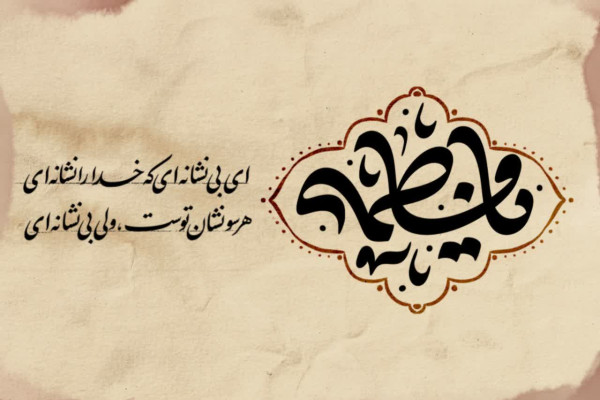 فاطمه
ای بی نشانه ای که خدا را نشانه ای
هر سو نشان توست، ولی بی نشانه ای